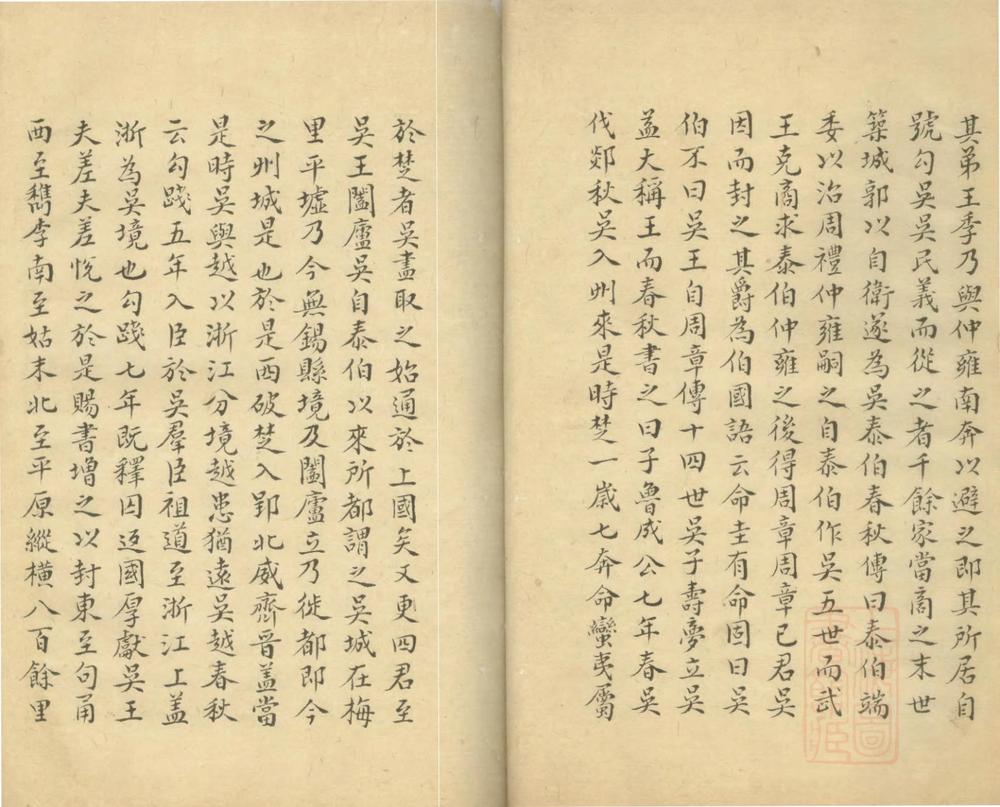 其弟王季乃與仲雍南奔以避之即其所居自
號勾吳吳民義而從之者千餘家當商之末世
築城郭以自衛遂為吳泰伯春秋傳曰泰伯端
委以治周禮仲雍嗣之自泰伯作吳五世而武
王克商求泰伯仲雍之後得周章周章已君吳
因而封之其爵為伯國語云命圭有命固曰吳
伯不曰吳王自周章傳十四世吳子壽夢立吳
益大稱王而春秋書之曰子魯成公七年春吳
伐郯秋吳入州來是時楚一歲七奔命蠻夷屬
於楚者吳盡取之始通於上國矣又更四君至
吳王闔廬吳自泰伯以來所都謂之吳城在梅
里平墟乃今無錫縣境及闔廬立乃徙都即今
之州城是也於是西破楚入郢北威齊晉蓋當
是時吳與越以浙江分境越患猶遠吳越春秋
云勾踐五年入臣於吳羣臣祖道至浙江上蓋
浙為吳境也勾踐七年既釋囚返國厚獻吳王
夫差夫差悅之於是賜書增之以封東至句甬
西至檇李南至姑末北至平原縱橫八百餘里